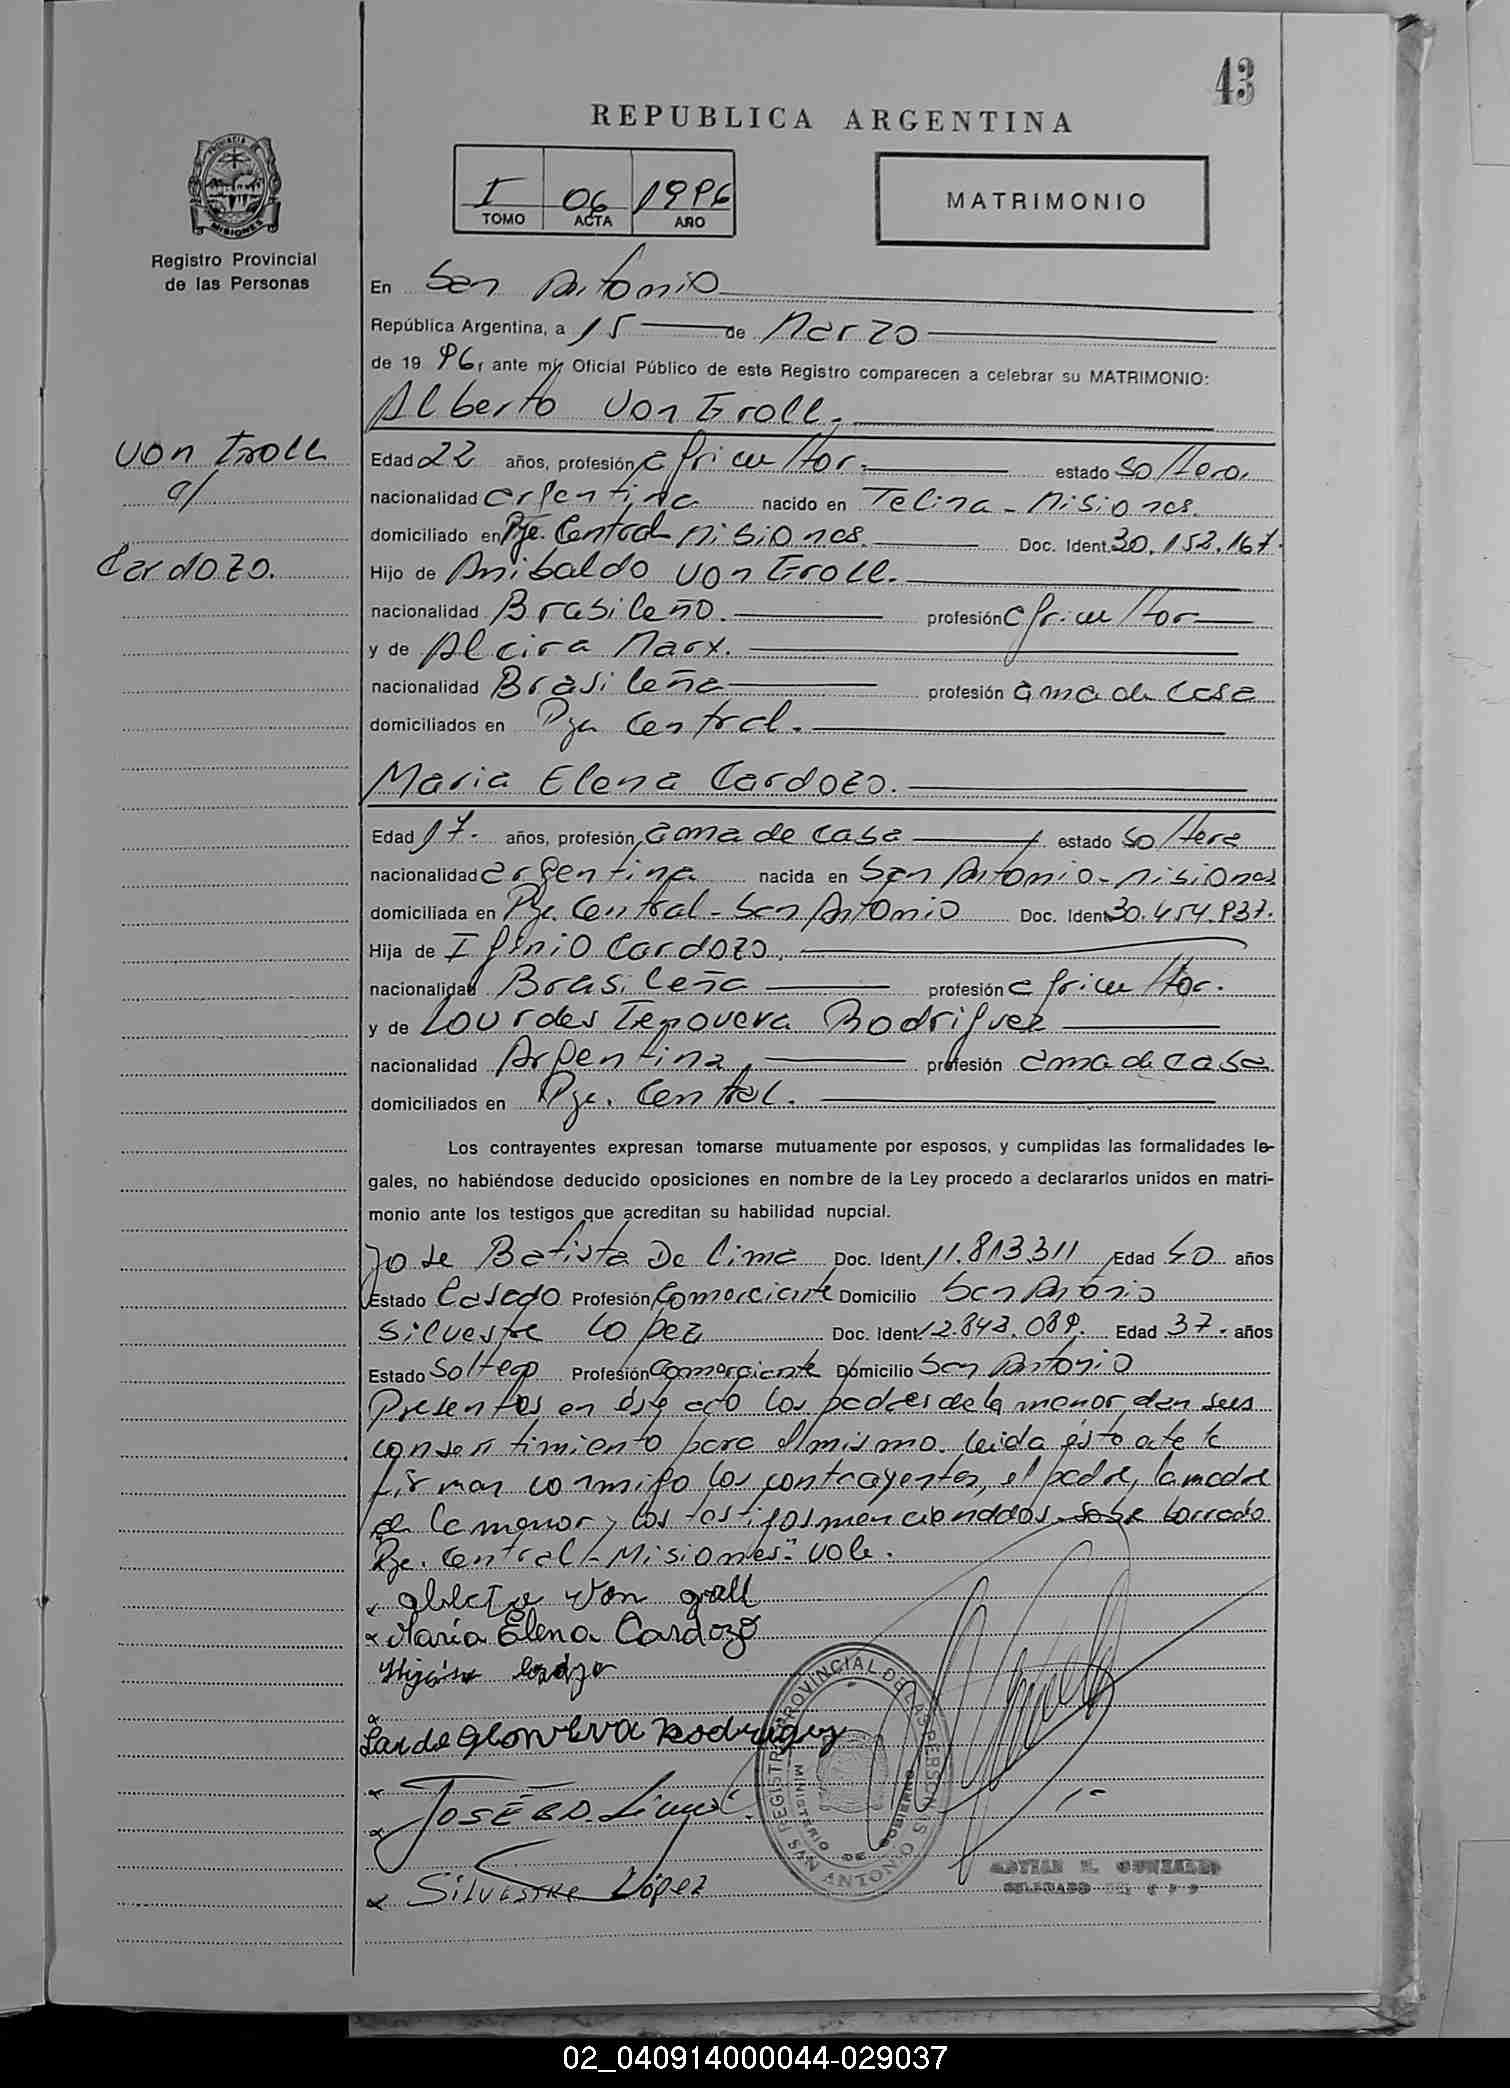 43
REPUBLICA ARGENTINA
I 06 1996
TOMO ACTA AÑO
MATRIMONIO
PROVINCIA DE MISIONES
Registro Provincial
de las Personas
En San Antonio
República Argentina, a 15 de Marzo
de 19 96, ante mí, Oficial Público de este Registro comparecen a celebrar su MATRIMONIO:
Alberto Von Groll.
Von Groll
c/
Cardozo.
Edad 22 años, profesión agricultor. estado soltero.
nacionalidad argentina nacido en Misiones.
domiciliado en Pje. Central Misiones. Doc. Ident. 30.152.167.
Hijo de Anibaldo Von Groll.
nacionalidad Brasileño. profesión agricultor
y de Alcira Marx.
nacionalidad Brasileña profesión ama de casa
domiciliados en Pje Central.
Maria Elena Cardozo.
Edad 17. años, profesión ama de casa estado soltera
nacionalidad argentina nacida en San Antonio - Misiones
domiciliada en Pje. Central - San Antonio Doc. Ident. 30.454.937.
Hija de Iginio Cardozo.
nacionalidad Brasileña profesión agricultor.
y de Lourdes Genoveva Rodriguez
nacionalidad Argentina, profesión ama de casa
domiciliados en Pje. Central.
Los contrayentes expresan tomarse mutuamente por esposos, y cumplidas las formalidades le-
gales, no habiéndose deducido oposiciones en nombre de la Ley procedo a declararlos unidos en matri-
monio ante los testigos que acreditan su habilidad nupcial.
Jose Batista De Lima Doc. Ident. 11.813.311 Edad 40 años
Estado Casado Profesión Comerciante Domicilio San Antonio
Silvestre Lopez Doc. Ident. 12.843.089. Edad 37. años
Estado Soltero Profesión Comerciante Domicilio San Antonio
Presentes en éste acto los padres de la menor dan sus
consentimiento para el mismo. leida ésto
firman conmigo los contrayentes, el padre, la madre
de la menor y los testigos mencionados. sobre borrado
Pje. Central - Misiones: vale.
x Alberto Von groll
x Maria Elena Cardozo
Higinio Cardozo
Genoveva Rodriguez
x JOSÉ B D. Lima
x SILVESTRE López
REGISTRO PROVINCIAL DE LAS PERSONAS
MINISTERIO DE GOBIERNO
SAN ANTONIO
02_040914000044-029037